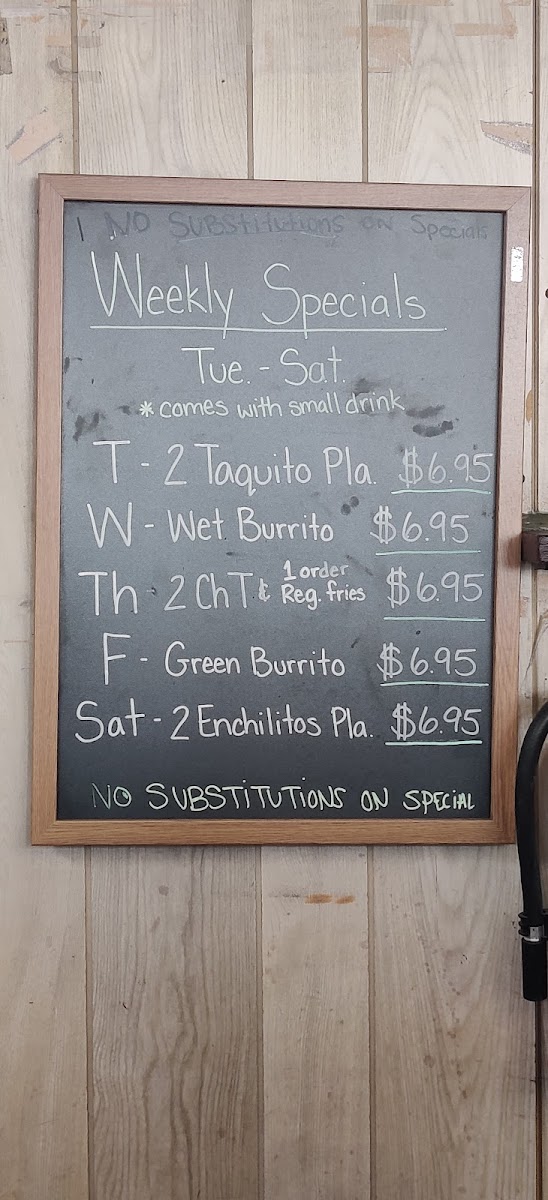 NO SUBStitutionS ON Specials
Weekly Specials
Tue. - Sat.
* comes with small drink
T - 2 Taquito Pla. $6.95
W - Wet Burrito $6.95
Th - 2 ChT & 1 order Reg. fries $6.95
F - Green Burrito $6.95
Sat - 2 Enchilitos Pla. $6.95
NO SUBSTiTUTiONS ON SPECiAL